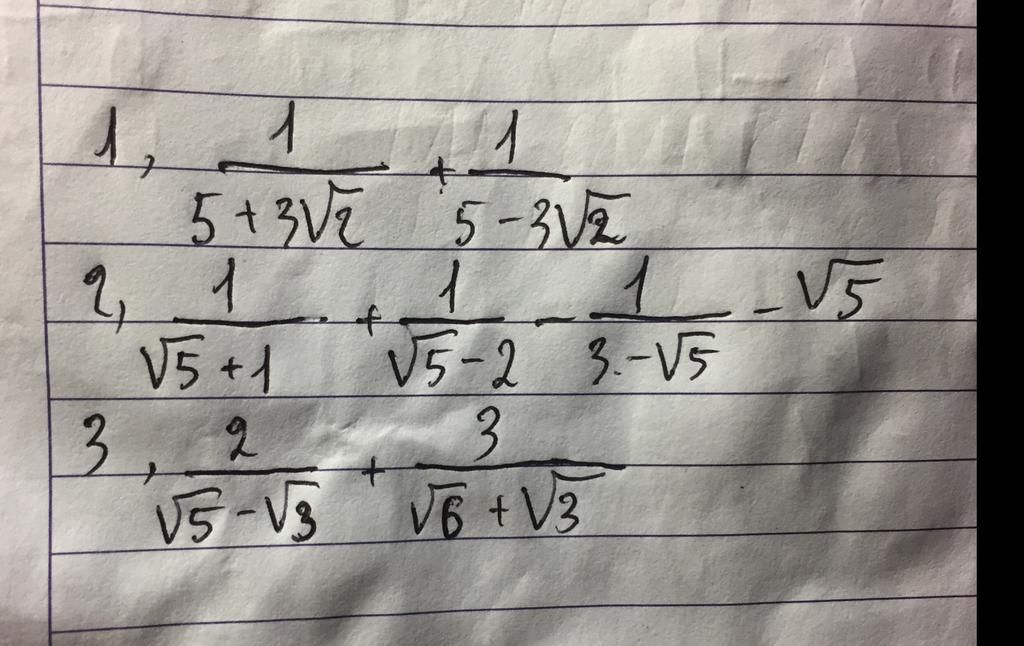 1, 1/(5+3√2) + 1/(5-3√2)
2, 1/(√5+1) + 1/(√5-2) - 1/(3-√5) - √5
3, 2/(√5-√3) + 3/(√6+√3)